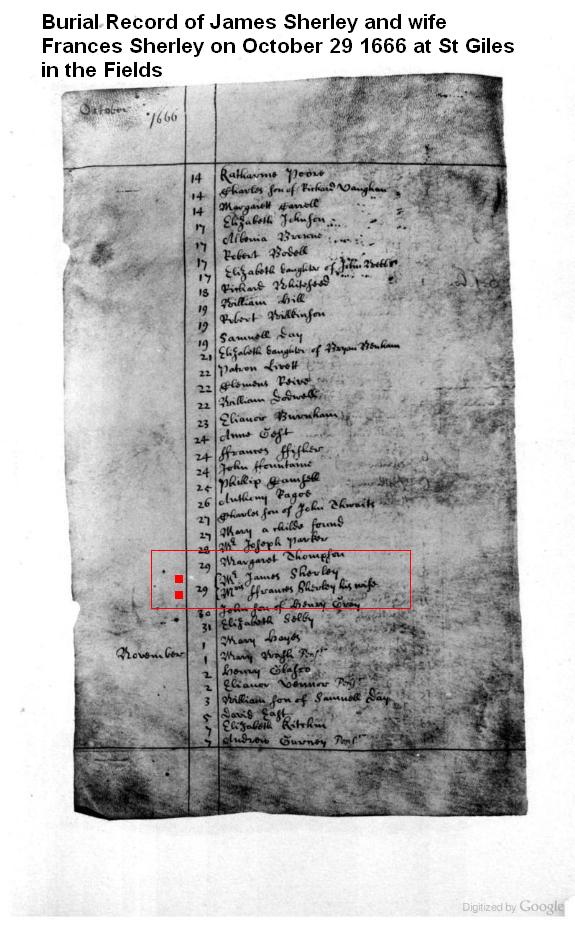 Burial Record of James Sherley and wife
Frances Sherley on October 29 1666 at St Giles
in the Fields
October 1666
14 Katharine Poore
14 Charles son of Richard Vaughan
14 Margarett
17 Elizabeth Johnson
17 Albenia Browne
17 Robert Bodell
17 Elizabeth daughter of John
18 Richard Whitehead
19 William Hill
19 Robert Wilkinson
19 Samuell Day
21 Elizabeth daughter of Bryan Benham
22 Patron
22 Clemens
22 William Dodwell
23 Elianor Burnham
24 Anne
24 ffrances ffisher
24 John ffountaine
25 Phillip
26 Anthony
27 Charles son of John Thwaits
27 Mary a childe found
28 Mr Joseph Parker
29 Margaret Thompson
Mr James Sherley
29 Mris ffrances Sherley his wife
30 John son of Henry Gray
31 Elizabeth Selby
November 1 Mary Hayes
1 Mary
2 Henry
2 Elianor Vennor
3 William son of Samuell Day
5 David East
7 Elizabeth Kitchin
7 Andrew Gurney
Digitized by Google